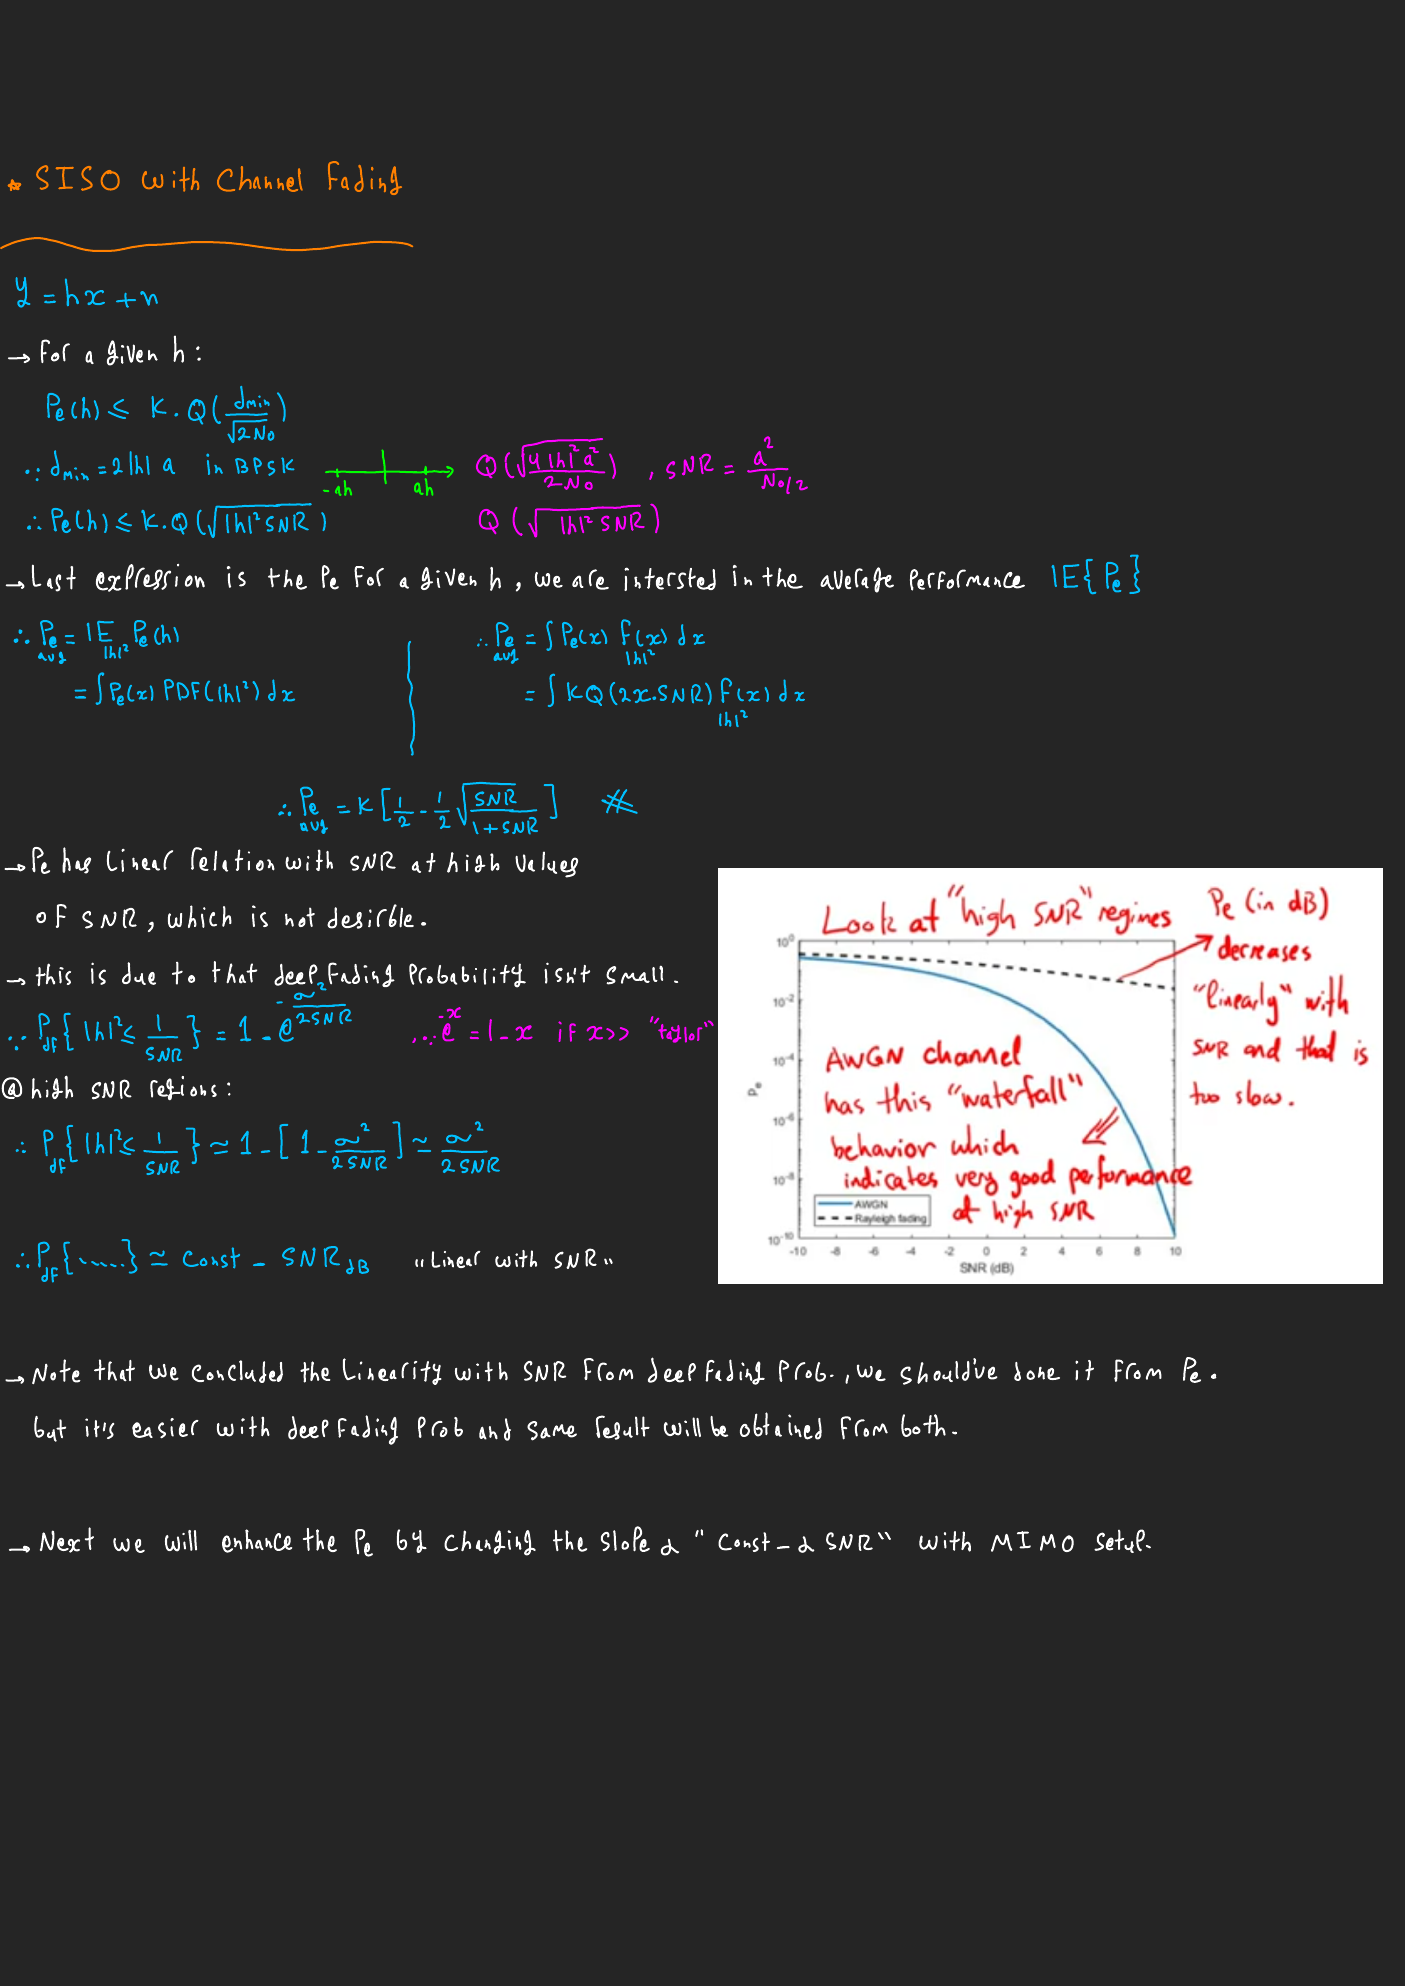 * SISO with Channel Fading
y = hx + n
→ For a given h :
Pe(h) ≤ K . Q( dmin / √2N0 )
∴ dmin = 2|h| a in BPSK
-ah ah
Q( √(4|h|² a² / 2N0) ) , SNR = a² / N0/2
∴ Pe(h) ≤ K.Q( √|h|² SNR )
Q ( √|h|² SNR )
→ Last expression is the Pe For a given h , we are intersted in the average performance IE{ Pe }
∴ Pe avg = IE |h|² Pe(h)
= ∫ Pe(x) PDF(|h|²) dx
∴ Pe avg = ∫ Pe(x) f|h|²(x) dx
= ∫ KQ(2x.SNR) f|h|²(x) dx
∴ Pe avg = K [ 1/2 - 1/2 √(SNR / 1+SNR) ] #
→ Pe has Linear relation with SNR at high values
of SNR, which is not desirble.
→ this is due to that deep Fading Probability isn't small.
∵ Pdf { |h|² ≤ 1/SNR } = 1 - e^(-σ²/2SNR) ∵ e^-x = 1-x if x>> "taylor"
@ high SNR regions :
∴ Pdf { |h|² ≤ 1/SNR } ≃ 1 - [ 1 - σ²/2SNR ] ≃ σ²/2SNR
∴ Pdf {......} ≃ Const - SNR dB "Linear with SNR"
Look at "high SNR" regimes
Pe (in dB)
decreases
"linearly" with
SNR and that is
too slow.
AWGN channel
has this "waterfall"
behavior which
indicates very good performance
at high SNR
10^0
10^-2
10^-4
10^-6
10^-8
10^-10
Pe
AWGN
Rayleigh fading
-10 -8 -6 -4 -2 0 2 4 6 8 10
SNR (dB)
→ Note that we concluded the Linearity with SNR From deep Fading Prob., we should've done it From Pe .
but it's easier with deep Fading Prob and same result will be obtained From both.
→ Next we will enhance the Pe by changing the slope α " Const - α SNR" with MIMO setup.